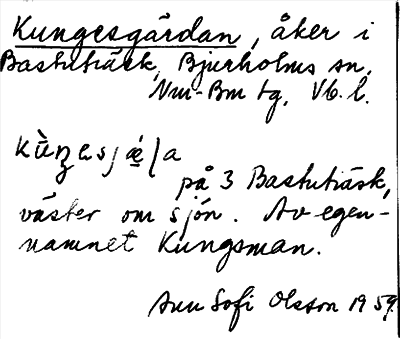 Kungesgårdan, åker i
Bastuträsk, Bjurholms sn,
Nm-Bm tg, Vb. l.
kùŋesjǽ̨la
på 3 Bastuträsk,
väster om sjön. Av egen-
namnet Kungsman.
Ann Sofi Olsson 1959.